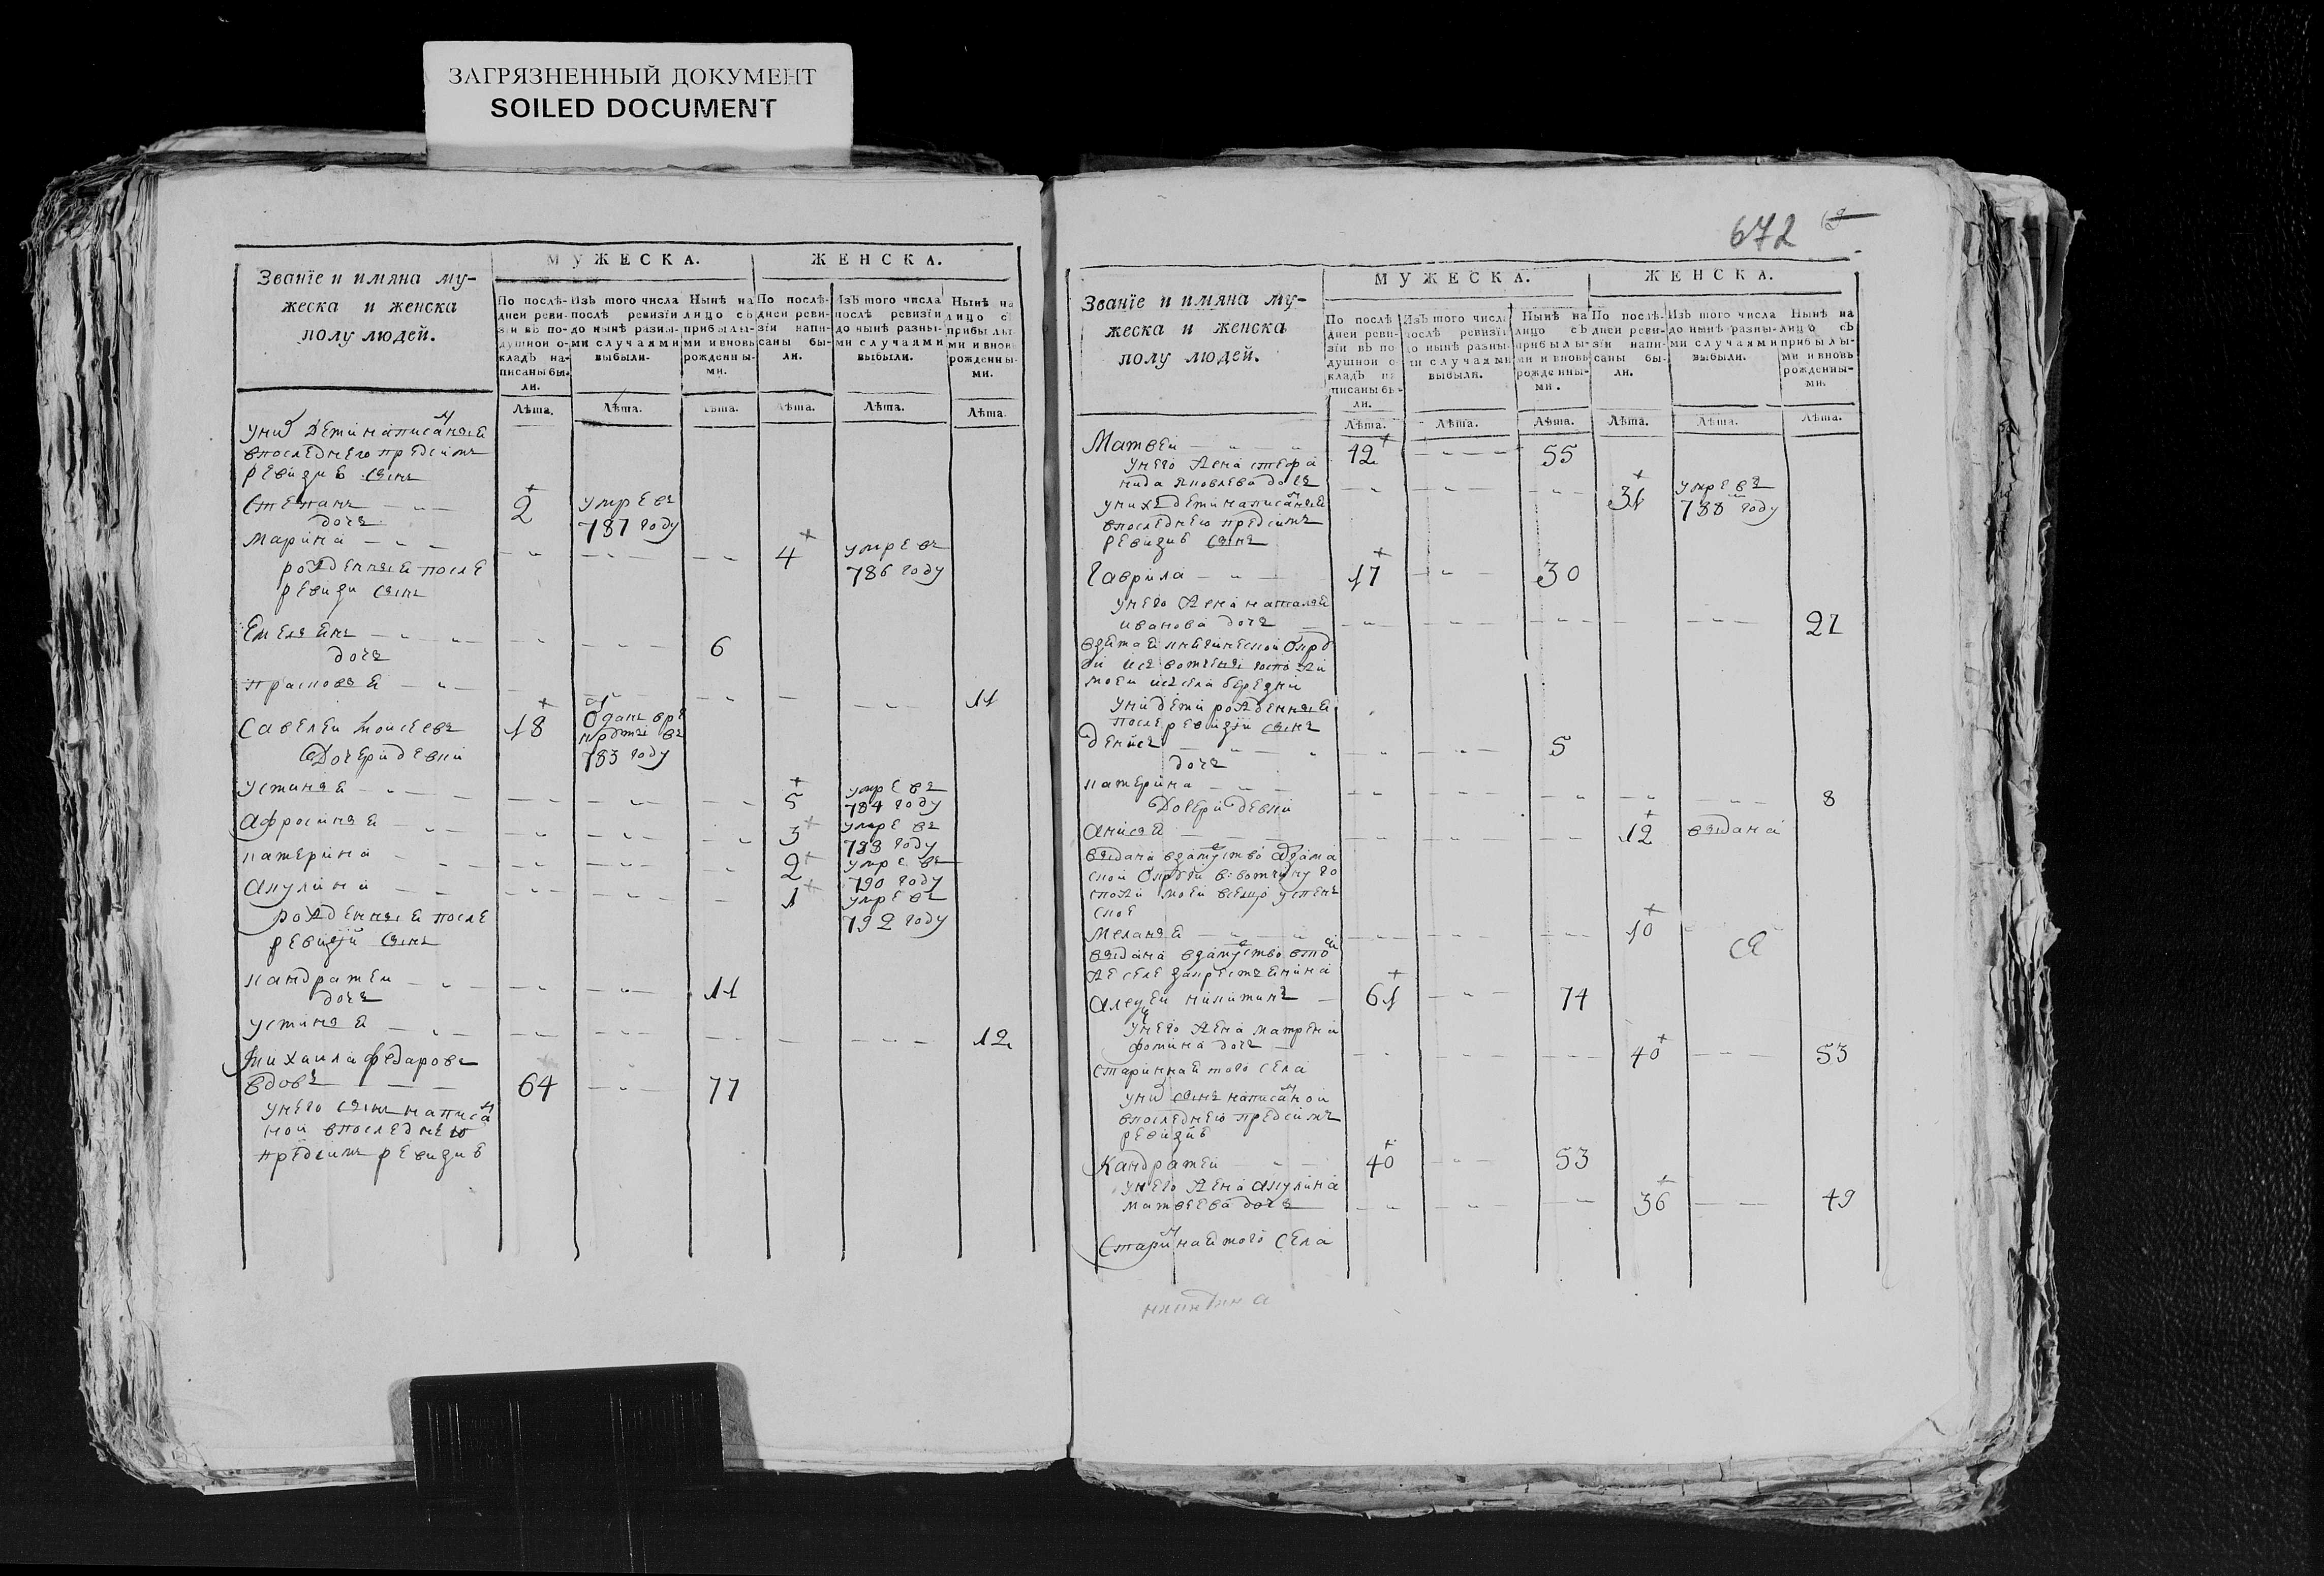 ЗАГРЯЗНЕННЫЙ ДОКУМЕНТ
SOILED DOCUMENT
Званїе и имяна му-
жеска и женска
полу людей.
МУЖЕСКА.
ЖЕНСКА.
По послѣ-
дней реви-
зїи въ по-
душной о-
кладъ на-
писаны бы-
ли.
Изъ того числа
послѣ ревизїи
до нынѣ разны-
ми случаями
выбыли.
Нынѣ на
лицо съ
прибылы-
ми и вновь
рожденны-
ми.
По послѣ-
дней реви-
зїи напи-
саны бы-
ли.
Изъ того числа
послѣ ревизїи
до нынѣ разны-
ми случаями
выбыли.
Нынѣ на
лицо с
прибылы-
ми и вновь
рожденны-
ми.
Лѣта. Лѣта. Лѣта. Лѣта. Лѣта. Лѣта.
у них дети написаныя
в последнего пред сим
ревизие сын
Степан 2 умре в
787 году
дочь
Марина 4 умре в
786 году
рожденныя после
ревизи сын
Емельян 6
дочь
прасковья 11
Савелей Моисеев 18 Одан в ре
круты в
783 году
Дочери девки
устинья 5 умре в
784 году
Афросинья 3 умре в
788 году
катерина 2 умре в
790 году
Акулина 1 умре в
792 году
рожденныя после
ревизїи сын
кандратей 11
дочь
устинья 12
Михаила федаров
вдов 64 77
у него сын написа
ной в последнею
пред сим ревизие
672
Званїе и имяна му-
жеска и женска
полу людей.
МУЖЕСКА.
ЖЕНСКА.
По послѣ
дней реви-
зїи въ по
душной о-
кладъ на
писаны бы-
ли.
Изъ того числа
послѣ ревизїи
до нынѣ разны-
ми случаями
выбыли.
Нынѣ на
лицо съ
прибылы-
ми и вновь
рожденны-
ми.
По послѣ-
дней реви-
зїи напи-
саны бы-
ли.
Изъ того числа
до нынѣ разны-
ми случаями
выбыли.
Нынѣ на
лицо съ
прибылы-
ми и вновь
рожденны-
ми.
Лѣта. Лѣта. Лѣта. Лѣта. Лѣта. Лѣта.
Матвей 42 55
у него жена степа
нида яковлева дочь 31 умре в
788 году
у них дети написаныя
в последнею пред сим
ревизие сын
Гаврила 17 30
у него жена наталья
иванова дочь 27
взятая
вотчины госпожи
моей из села
у них дети рожденныя
после ревизїи сын
денис 5
дочь
катерина 8
Дочери девки
Анисья 12 выдана
выдана в замуство
ской округи в вотчину го
спожи моей в сельцо успен
ское
Меланья 10
выдана в замуство в то
же селе за крестьянина
Алексей никитин 61 74
у него жена матрена
фомина дочь 40 53
старинная того села
у них сын написаной
в последнею пред сим
ревизие
Кандратей 40 53
у него жена акулина
матвеева дочь 36 49
Старинная того села